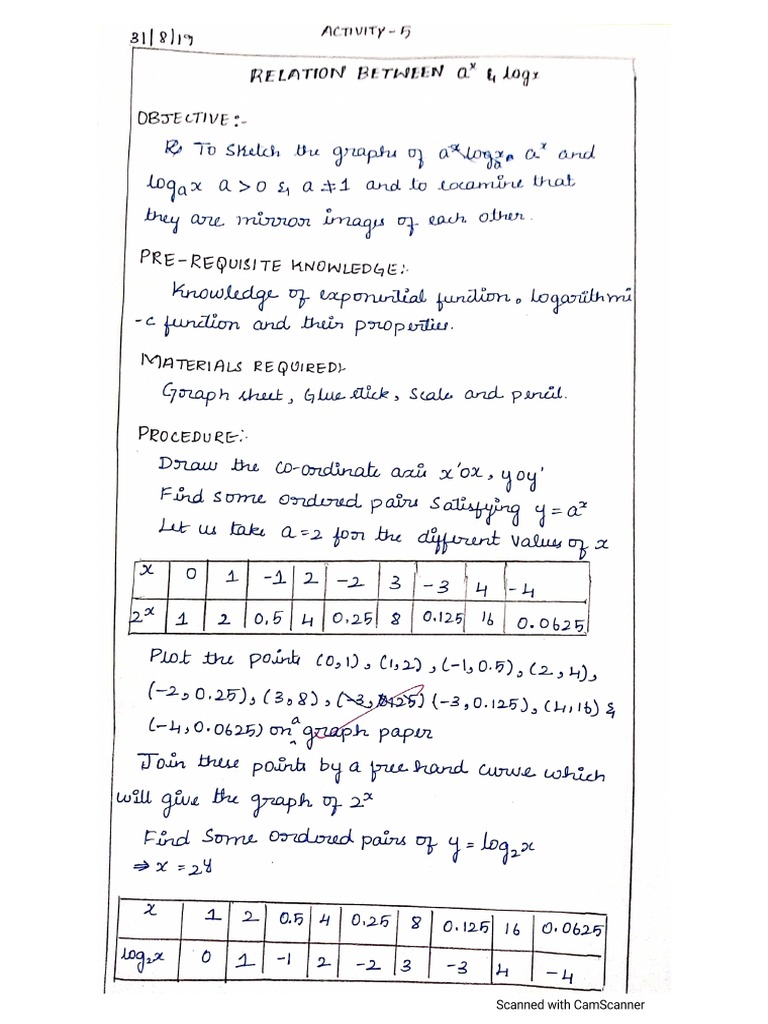 31/8/19
ACTIVITY-5
RELATION BETWEEN aˣ & logx
OBJECTIVE:-
To sketch the graphs of aˣ and
logₐx a>0 & a≠1 and to examine that
they are mirror images of each other.
PRE-REQUISITE KNOWLEDGE:-
Knowledge of exponential function, Logarithmi
-c function and their properties.
MATERIALS REQUIRED:-
Graph sheet, Glue stick, Scale and pencil.
PROCEDURE:-
Draw the co-ordinate axis x'ox, yoy'
Find some ordered pairs satisfying y=aˣ
Let us take a=2 for the different values of x
x 0 1 -1 2 -2 3 -3 4 -4
2ˣ 1 2 0.5 4 0.25 8 0.125 16 0.0625
Plot the points (0,1), (1,2), (-1,0.5), (2,4),
(-2,0.25), (3,8), (-3,0.125), (4,16) &
(-4,0.0625) on a graph paper
Join these points by a free hand curve which
will give the graph of 2ˣ
Find Some ordered pairs of y=log₂x
⇒ x=2ʸ
x 1 2 0.5 4 0.25 8 0.125 16 0.0625
log₂x 0 1 -1 2 -2 3 -3 4 -4
Scanned with CamScanner